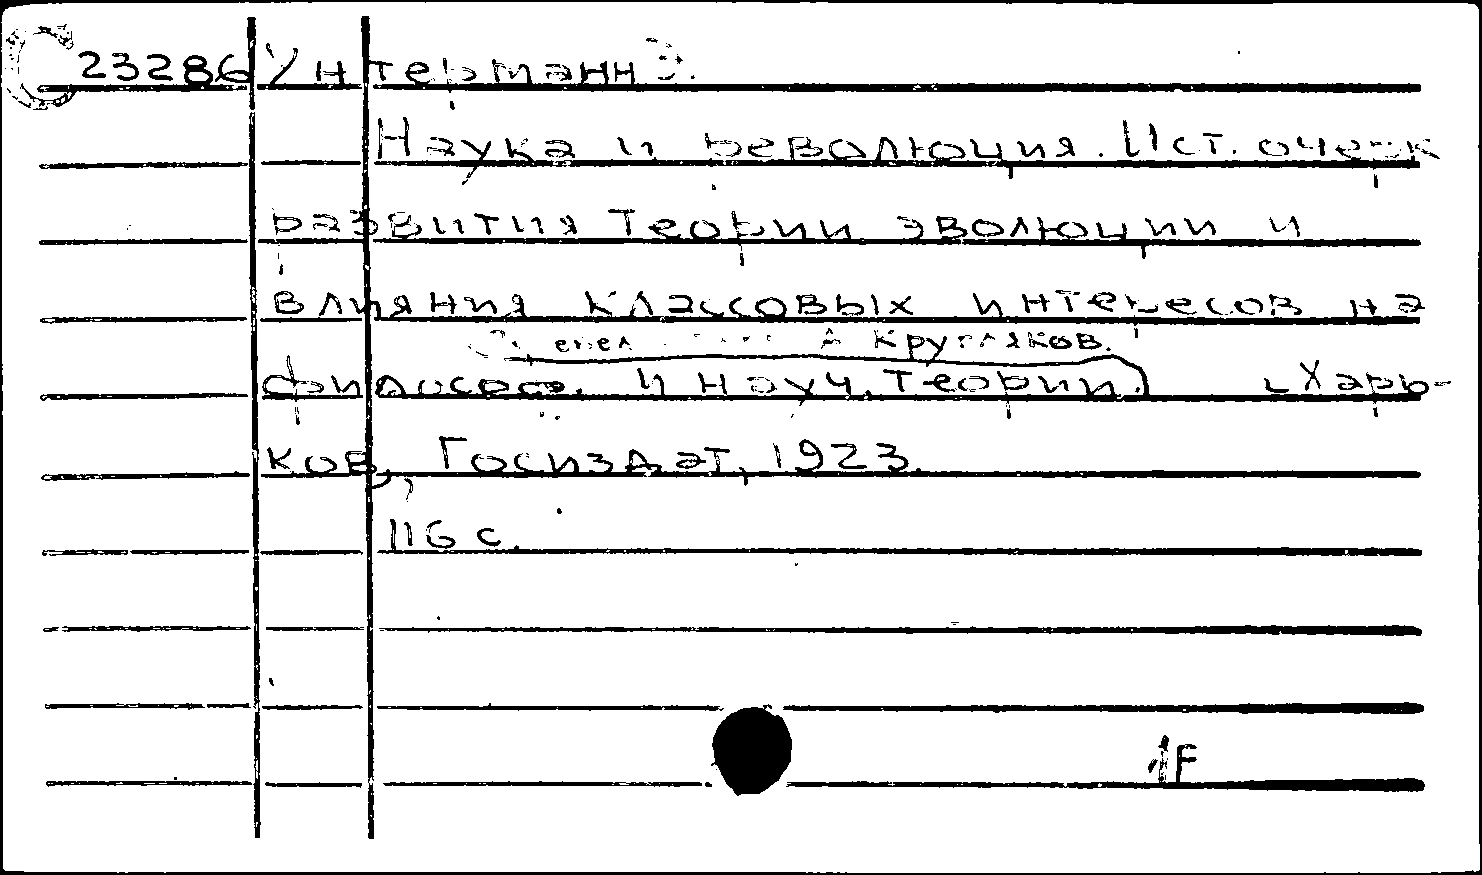 С 23286 Унтерманн Э.
Наука и революция. Ист. очерк
развития теории эволюции и
влияния классовых интересов на
А Кругляков.
философ. и науч. теории. [Харь-
ков], Госиздат, 1923.
116 с.
1F